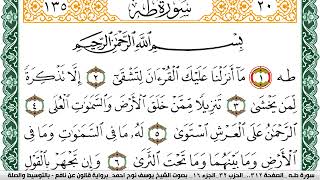 ١٣٥ سورة طه ٢٠
بِسْمِ اللَّهِ الرَّحْمَٰنِ الرَّحِيمِ
طه ١ مَا أَنزَلْنَا عَلَيْكَ الْقُرْءَانَ لِتَشْقَىٰ ٢ إِلَّا تَذْكِرَةً
لِّمَن يَخْشَىٰ ٣ تَنزِيلًا مِّمَّنْ خَلَقَ الْأَرْضَ وَالسَّمَٰوَٰتِ الْعُلَى ٤
الرَّحْمَٰنُ عَلَى الْعَرْشِ اسْتَوَىٰ ٥ لَهُ مَا فِي السَّمَٰوَٰتِ وَمَا فِي
الْأَرْضِ وَمَا بَيْنَهُمَا وَمَا تَحْتَ الثَّرَىٰ ٦ وَإِن تَجْهَرْ بِالْقَوْلِ
سورة طه .. الصفحة ٣١٢ .. الحزب ٣٢ .. الجزء ١٦ .. بصوت الشيخ يوسف نوح احمد .. برواية قالون عن نافع - بالتوسيط والصلة